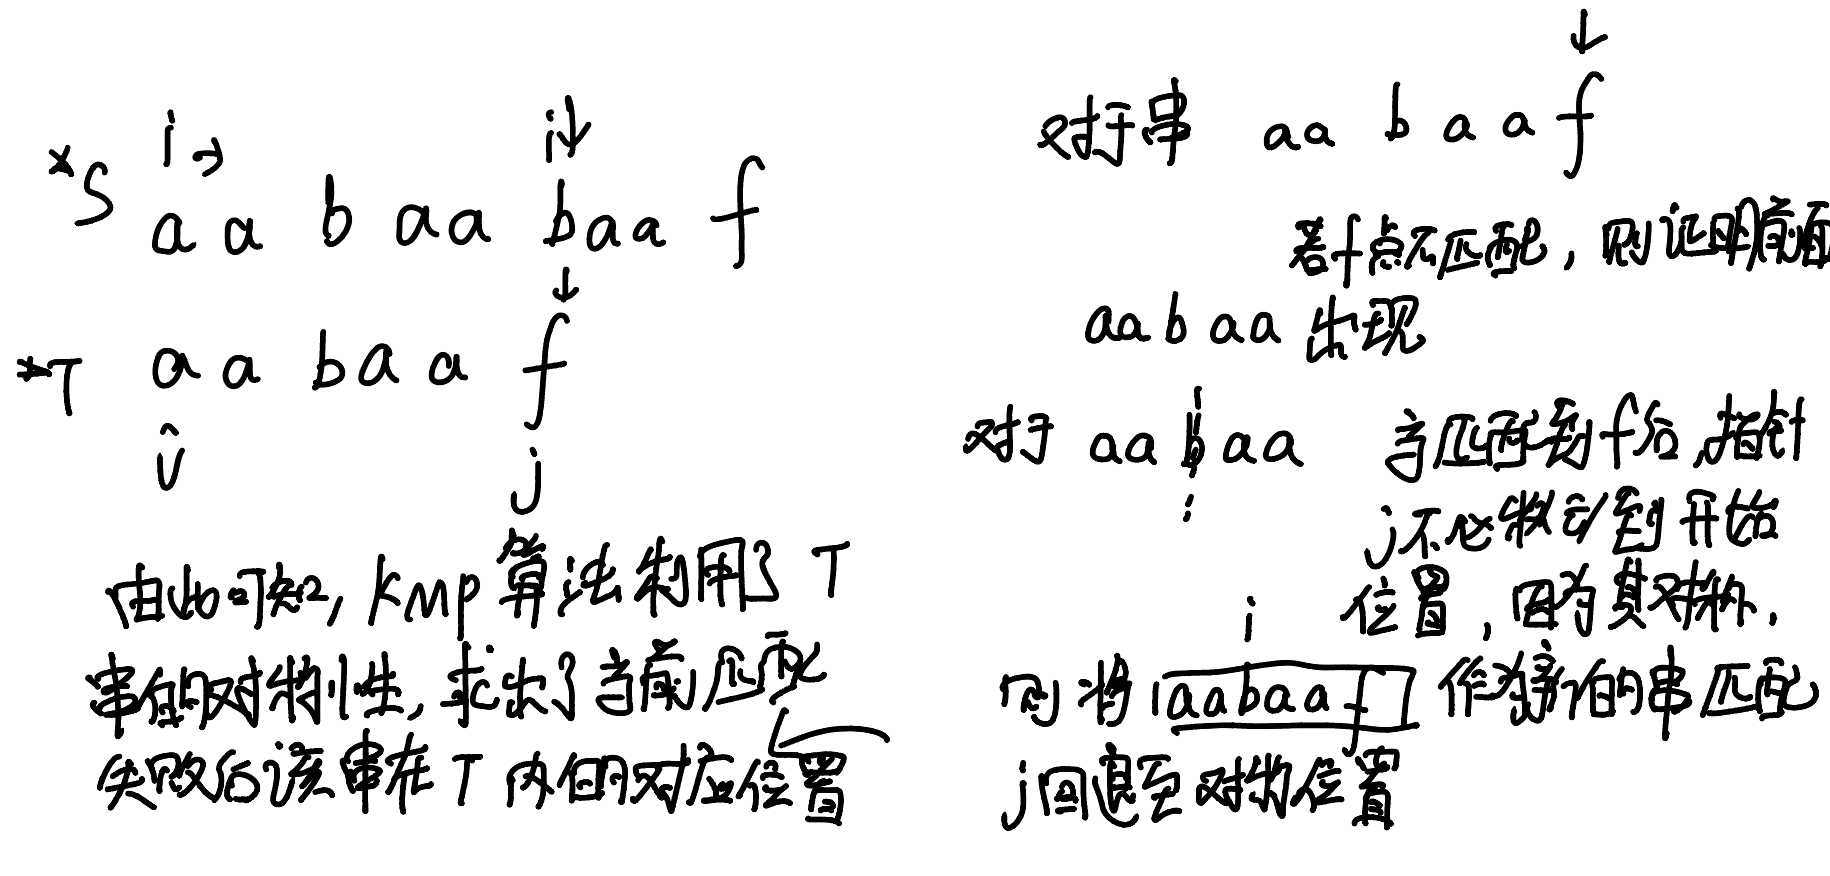 i → i↓
*S a a b a a b a a f
↓
*T a a b a a f
j
由此可知, kmp算法利用了T
串的对称性, 求出了当前匹配
失败后该串在T内的对应位置
↓
对于串 aa b a a f
若f点不匹配, 则证明前面
aa b aa 出现
对于 aa b aa 当匹配到f后, 指针
j不必移动到开始
位置, 因为其对称.
i
则将 aabaaf 作为新的串匹配
j回退至对称位置